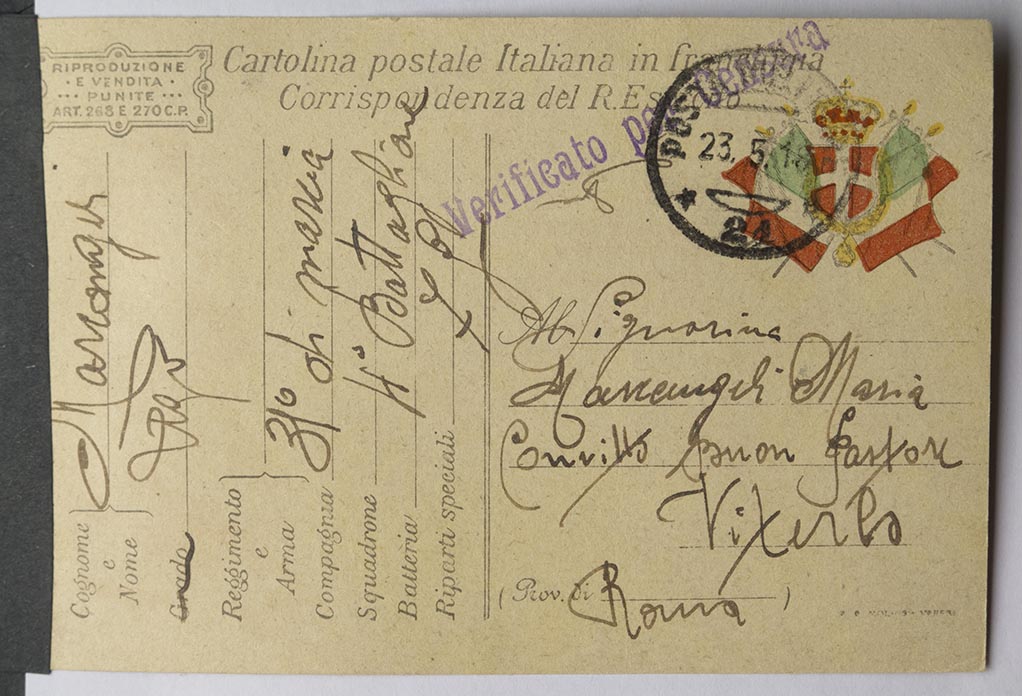 RIPRODUZIONE
E VENDITA
PUNITE
ART. 268 E 270 C.P.
Cartolina postale Italiana in franchigia
Corrispondenza del R. Esercito
Verificato per Censura
POSTA
23. 5.
Cognome
e
Nome
Grado
Reggimento
e
Arma
31º di marcia
Compagnia
Squadrone
4º Battaglione
Batteria
Riparti speciali
Alla Signorina
Marcangeli Maria
Convitto Buon Pastore
Viterbo
(Prov. di Roma)